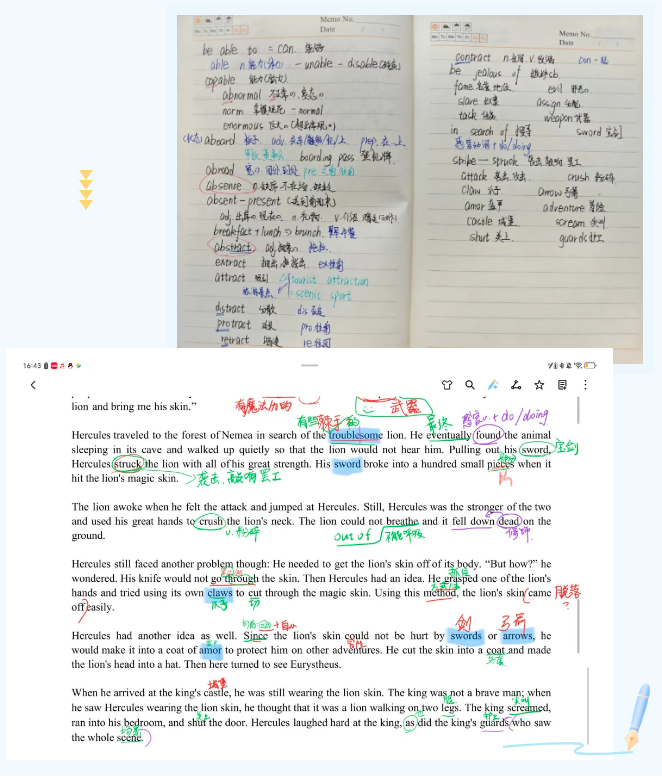 Memo No.
Date
Mo Tu We Th Fr Sa Su
be able to = can. 能够
able n.能力(才) - unable - disable(残疾)
capable 能力(能力)
abnormal 不正常の.变态の
norm 常规规范 - normal
enormous 巨大の(超出常规の)
aboard prep.在…上
boarding pass 登机牌
abroad
absence n.缺席.不在场.缺乏
absent - present
adj.出席の 现在の n.礼物. v.介绍
breakfast + lunch => brunch. 早午餐
abstract adj.抽象の
extract
attract 吸引 tourist attraction
旅游景点 = scenic sport
distract 分散
protract pro 往前
retract re 往回
Memo No.
Date
Mo Tu We Th Fr Sa Su
contract n.合同 v.收缩 con - 一起
be jealous of 嫉妒sb
fame 名望 地位 evil 邪恶の
slave 奴隶 assign 分配
task 任务 weapon 武器
in search of 搜寻 sword 宝剑
感官动词 + do/doing
strike — struck 袭击.敲响.罢工
attack 袭击.攻击 crush 粉碎
claw 爪子 arrow 弓箭
amor 盔甲 adventure 冒险
castle 城堡 scream 尖叫
shut 关上 guards 护卫
16:43
lion and bring me his skin.”
有魔法力的 武器
有些棘手的 最终 感官v.+do/doing
Hercules traveled to the forest of Nemea in search of the troublesome lion. He eventually found the animal
sleeping in its cave and walked up quietly so that the lion would not hear him. Pulling out his sword, 宝剑
Hercules struck the lion with all of his great strength. His sword broke into a hundred small pieces when it
hit the lion's magic skin. 袭击.敲响罢工 片
The lion awoke when he felt the attack and jumped at Hercules. Still, Hercules was the stronger of the two
and used his great hands to crush the lion's neck. The lion could not breathe and it fell down dead on the
ground. v.粉碎 out of 不能呼吸 修饰
Hercules still faced another problem though: He needed to get the lion's skin off of its body. “But how?” he
wondered. His knife would not go through the skin. Then Hercules had an idea. He grasped one of the lion's
hands and tried using its own claws to cut through the magic skin. Using this method, the lion's skin came 脱落
off easily. 爪子 切 ?
剑 弓箭
Hercules had another idea as well. Since the lion's skin could not be hurt by swords or arrows, he
would make it into a coat of amor to protect him on other adventures. He cut the skin into a coat and made
the lion's head into a hat. Then here turned to see Eurystheus. 外套
城堡
When he arrived at the king's castle, he was still wearing the lion skin. The king was not a brave man; when
he saw Hercules wearing the lion skin, he thought that it was a lion walking on two legs. The king screamed,
腿 尖叫
ran into his bedroom, and shut the door. Hercules laughed hard at the king, as did the king's guards who saw
关上 护卫
the whole scene. 场景